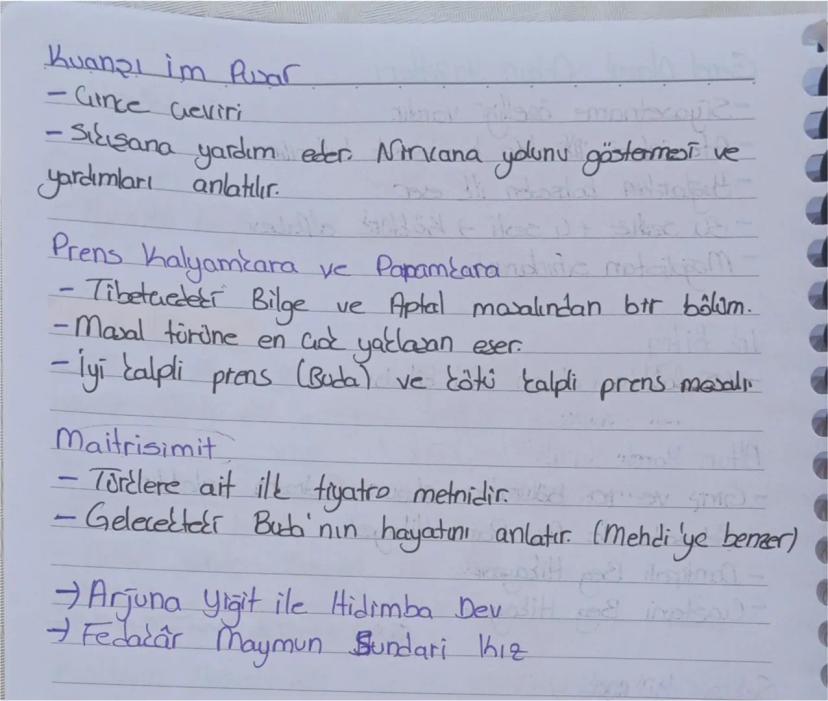 Kuanşi im Pusar
- Çince çeviri
- Sıkışana yardım eder. Nirvana yolunu göstermesi ve
yardımları anlatılır.
Prens Kalyamkara ve Papamkara
- Tibetçedeki Bilge ve Aptal masalından bir bölüm.
- Masal türüne en çok yaklaşan eser.
- İyi kalpli prens (Buda) ve kötü kalpli prens masalı.
Maitrisimit
- Türklere ait ilk tiyatro metnidir.
- Gelecekteki Buda'nın hayatını anlatır. (Mehdi'ye benzer)
→ Arjuna Yiğit ile Hidimba Dev
→ Fedakâr Maymun Sundari Kız